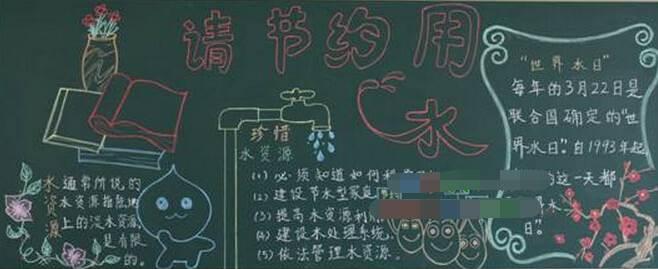 请节约用
水
水资源
通常所说的
水资源指陆地
上的淡水资源
是有限
的。
珍惜
水资源
(1) 必须知道如何
(2) 建设节水型家庭
(3) 提高水资源利
(4) 建设水处理系统
(5) 依法管理水资源。
“世界水日”
每年的3月22日是
联合国确定的“世
界水日”。自1993年起
的这一天都
水
日”。